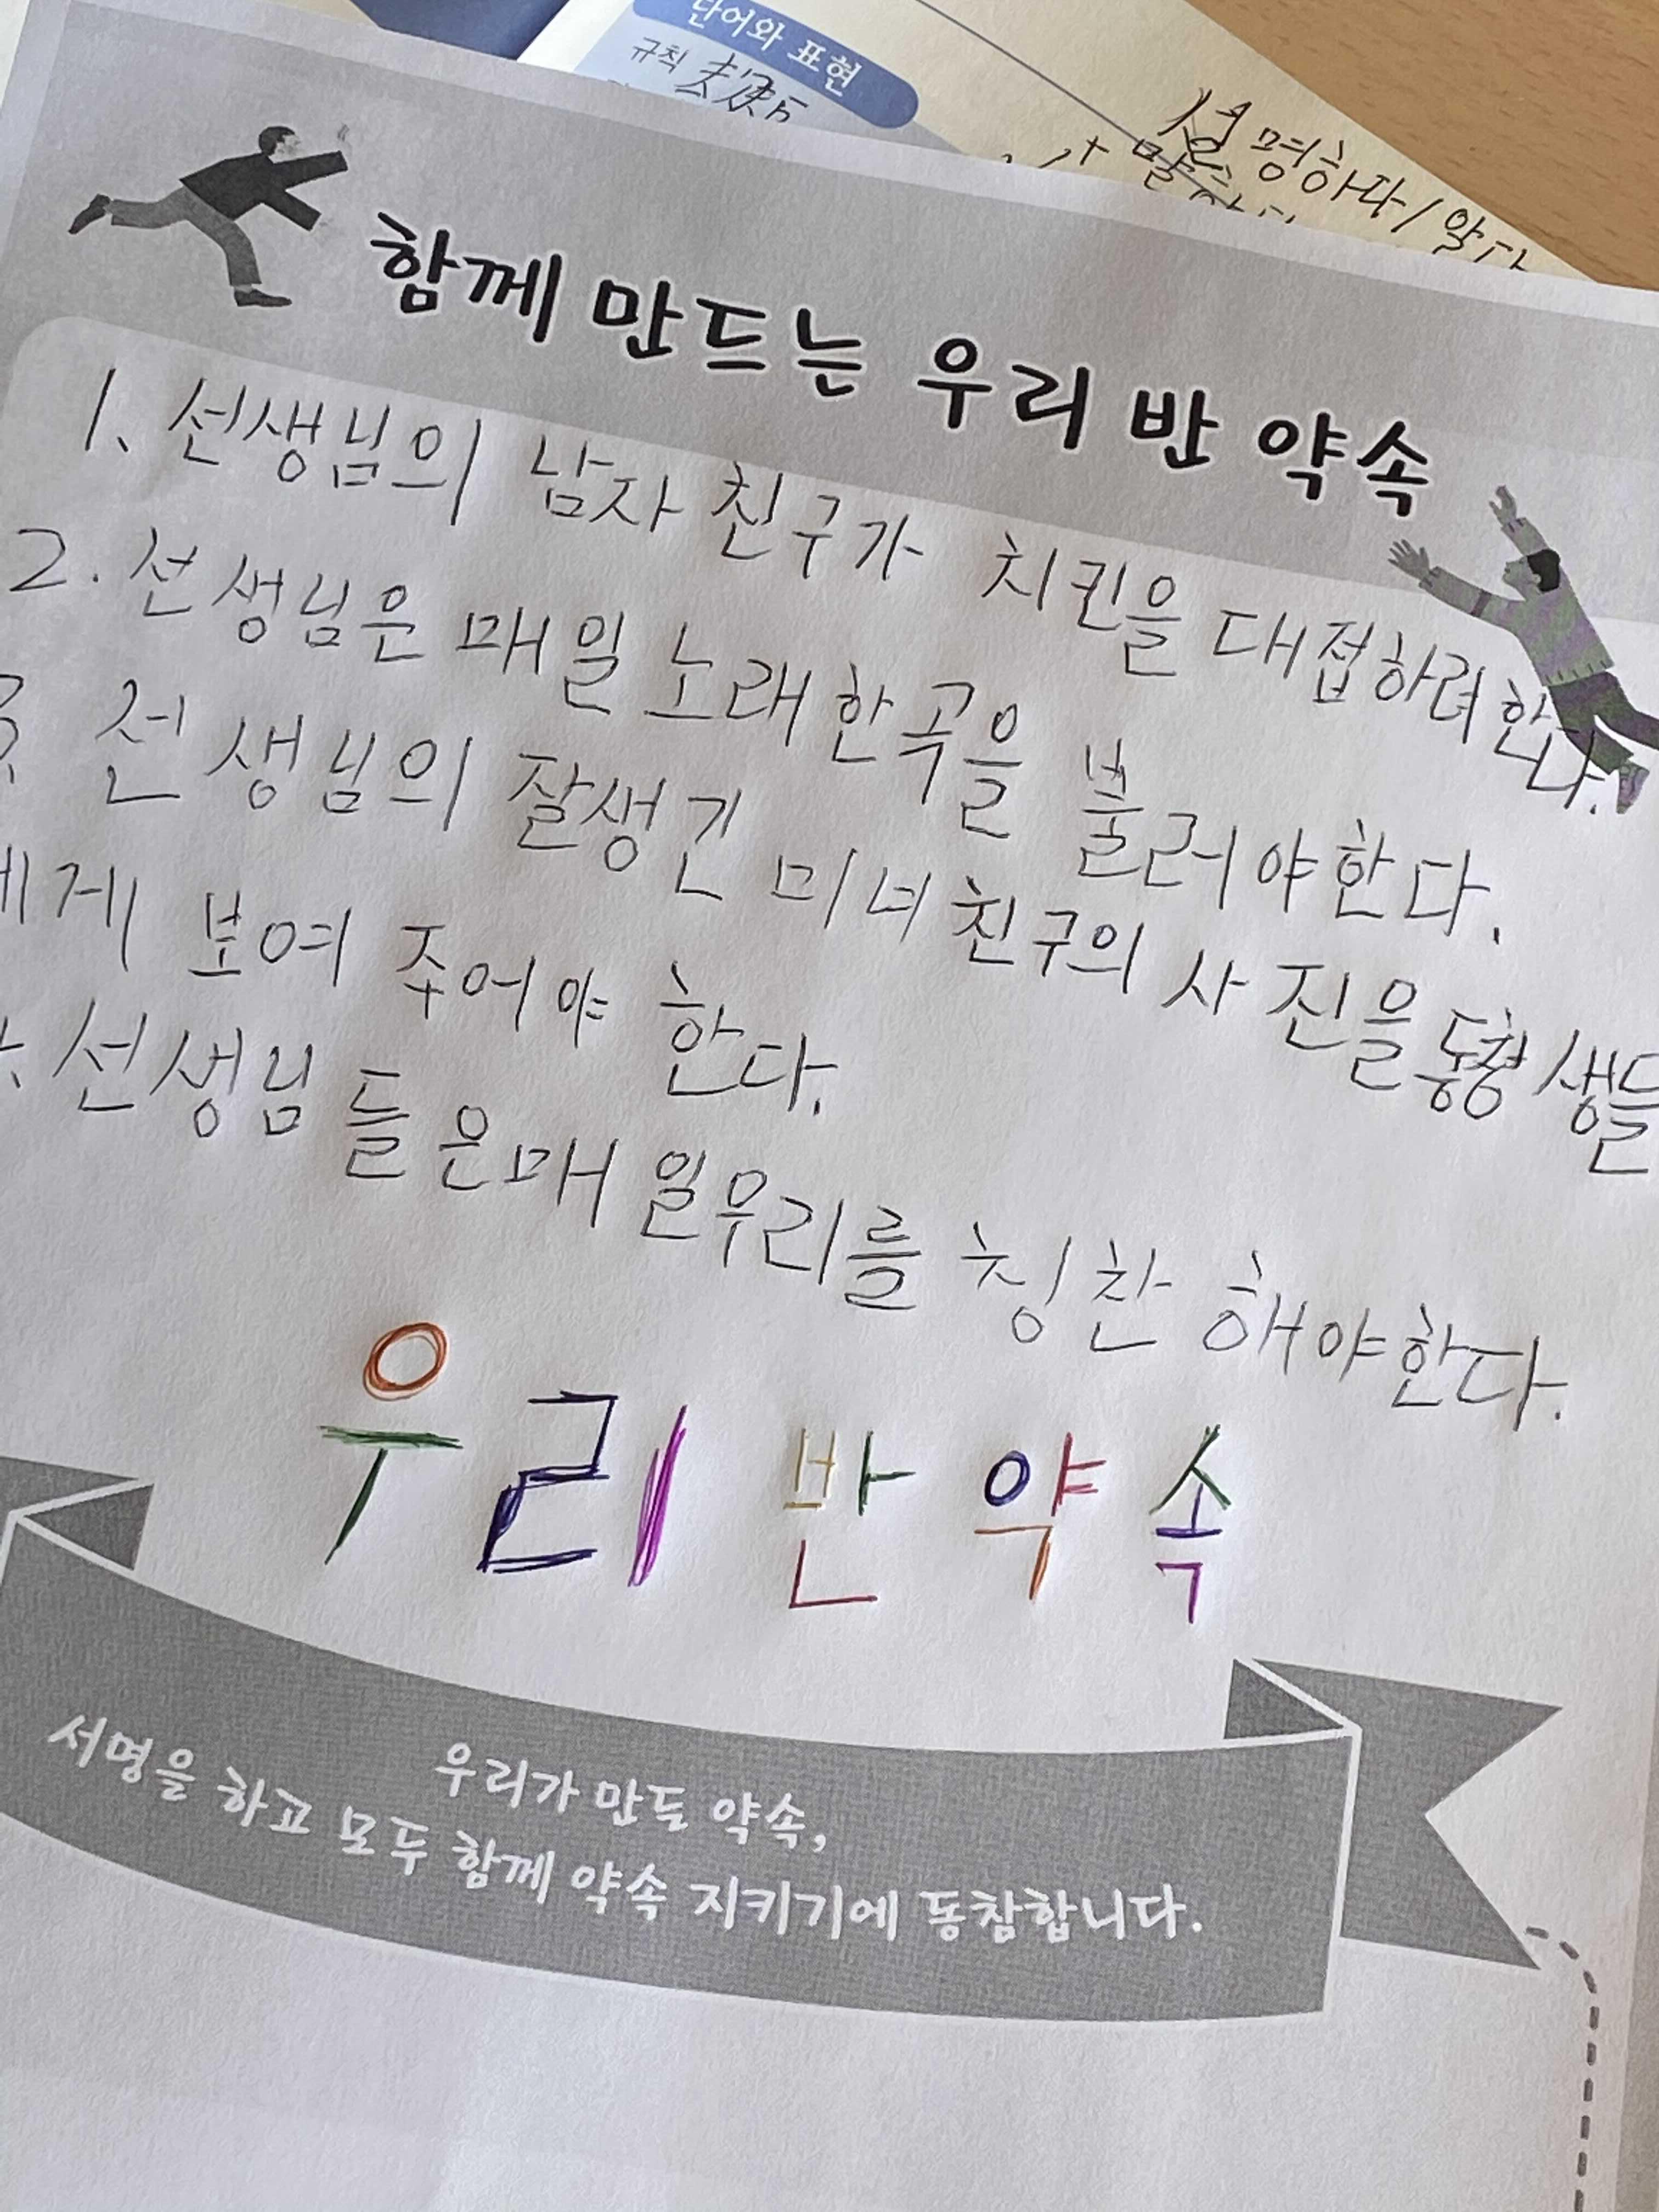 단어와 표현
규칙
설명하다/알다
함께 만드는 우리 반 약속
1. 선생님의 남자 친구가 치킨을 대접하려한다.
2. 선생님은 매일 노래 한곡을 불러야한다.
3. 선생님의 잘생긴 미녀 친구의 사진을 동생들
에게 보여 주어야 한다.
선생님들은 매일 우리를 칭찬해야한다.
우리 반 약속
우리가 만든 약속,
서명을 하고 모두 함께 약속 지키기에 동참합니다.